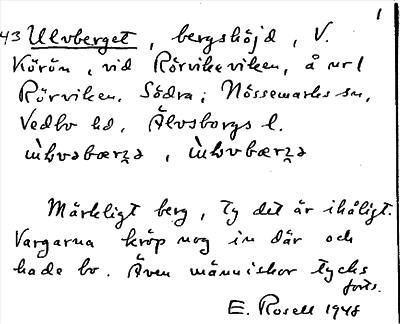 1
43 Ulvberget, bergshöjd, V.
Körön, vid Rörvikeviken, å nr 1
Rörviken, Södra; Nössemarks sn,
Vedbo hd, Älvsborgs l.

Märkligt berg, ty det är ihåligt.
Vargarna kröp nog in där och
hade bo. Även människor tycks
forts.
E. Rosell 1948